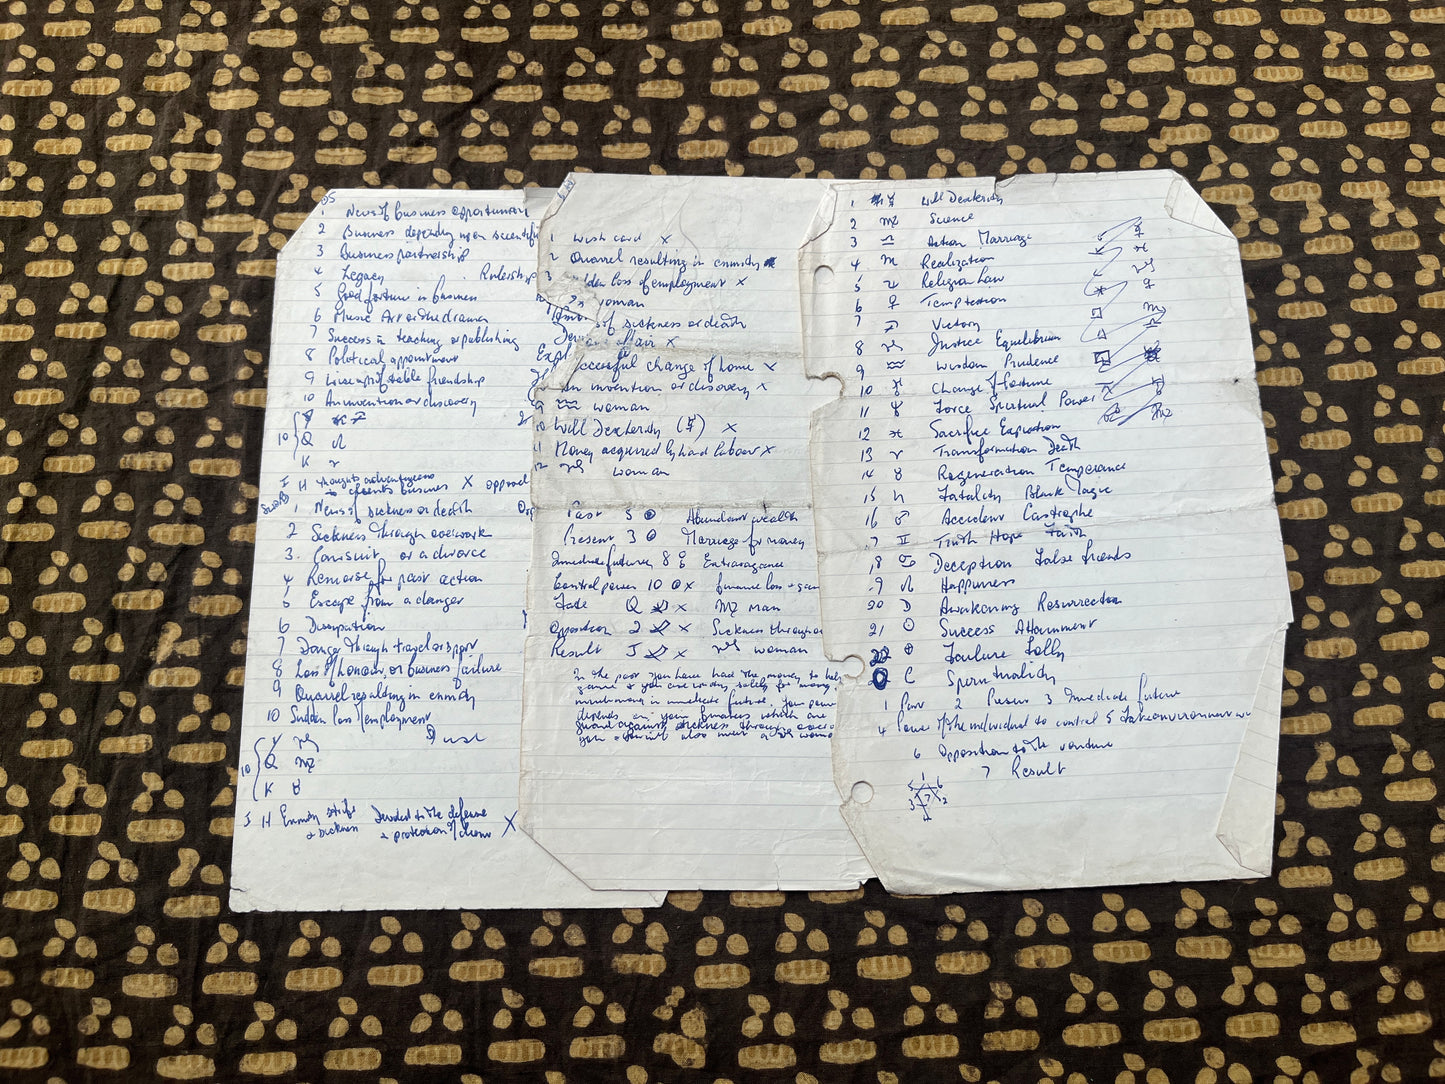 1 News of business opportunity
2 Business depending upon scientific
3 Business partnership
4 Legacy Rulership
5 Good fortune in business
6 Music Art or the drama
7 Success in teaching or publishing
8 Political appointment
9 Line up of stable friendship
10 An invention or discovery
10
Q ♌
K ♈
J H thoughts advantageous
events business X
1 News of sickness or death
2 Sickness through overwork
3. Lawsuit, or a divorce
4 Remorse for past action
5 Escape from a danger
6 Dissipation
7 Danger through travel or sport
8 Loss of honour, or business failure
9 Quarrel resulting in enmity
10 Sudden loss of employment
10
Q ♍
K ♉
J H Enmity strife Devoted to the defense
+ sickness + protection of X
1 Wish card X
2 Quarrel resulting in enmity
3 loss of employment X
woman
of sickness or death
affair X
ccessful change of home X
An invention or discovery X
9 ♒ woman
10 Will Dexterity (☿) X
11 Money acquired by hard labour X
12 ♑ woman
Past 5 Abundant wealth
Present 3 Marriage for money
Immediate future 8 Extravagance
Control power 10 X finance loss + gain
Fate Q X ♍ man
Opposition 2 X Sickness through o
Result J X ♑ woman
In the past you have had the money to help
game + you are working solely for money
in immediate future. your power
depends on your finances which are
guard against sickness through over
you will also meet a ♑ woman
1 ☿ Will Dexterity
2 ♍ Science
3 ♎ Action Marriage
4 ♏ Realization
5 ♃ Religion Law
6 ♀ Temptation
7 Victory
8 ♑ Justice Equilibrium
9 ♒ Wisdom Prudence
10 Change of fortune
11 Force Spiritual Power
12 ♓ Sacrifice Expiation
13 ♈ Transformation Death
14 ♉ Regeneration Temperance
15 ♄ Fatality Black Magic
16 ♂ Accident Castrophe
17 ♊ Truth Hope Faith
18 ♋ Deception False friends
19 ♌ Happiness
20 Awakening Resurrection
21 Success Attainment
22 Failure Folly
Spirituality
1 Past 2 Present 3 Immediate future
4 Power of the individual to control 5 Fate environment
6 Opposition to the venture
7 Result
1
5 6
3 7 2
4